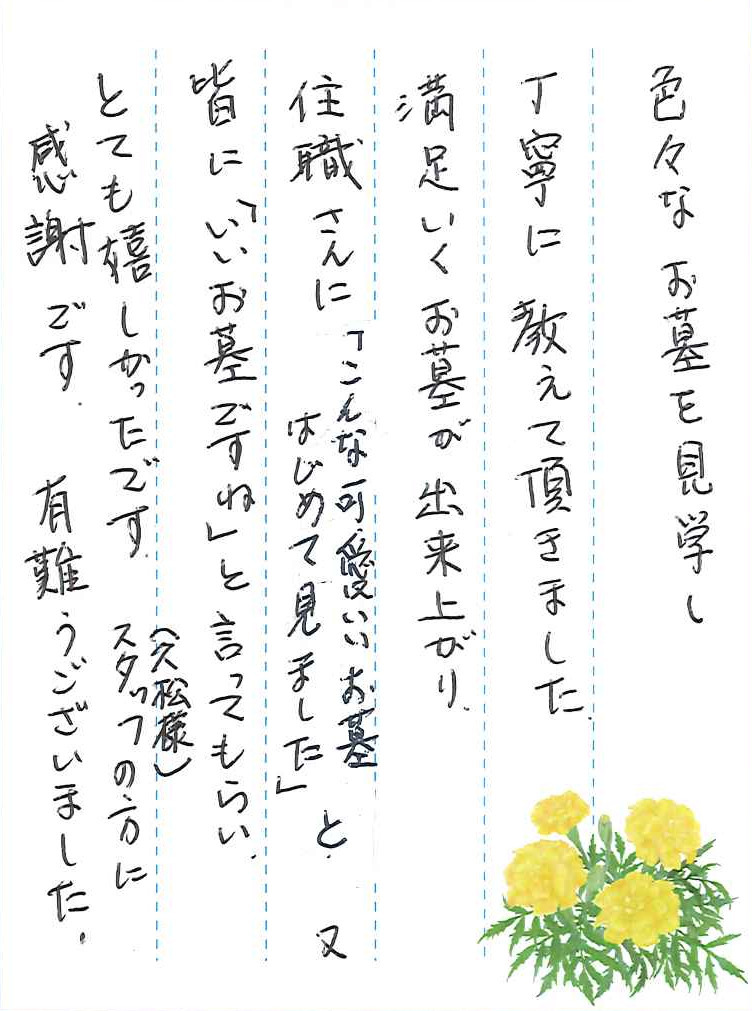 色々なお墓を見学し
丁寧に教えて頂きました.
満足いくお墓が出来上がり.
住職さんに「こんな可愛いいお墓
はじめて見ました」と. 又
皆に「いいお墓ですね」と言ってもらい.
とても嬉しかったです. スタッフの方に
(久松様)
感謝です. 有難うございました.